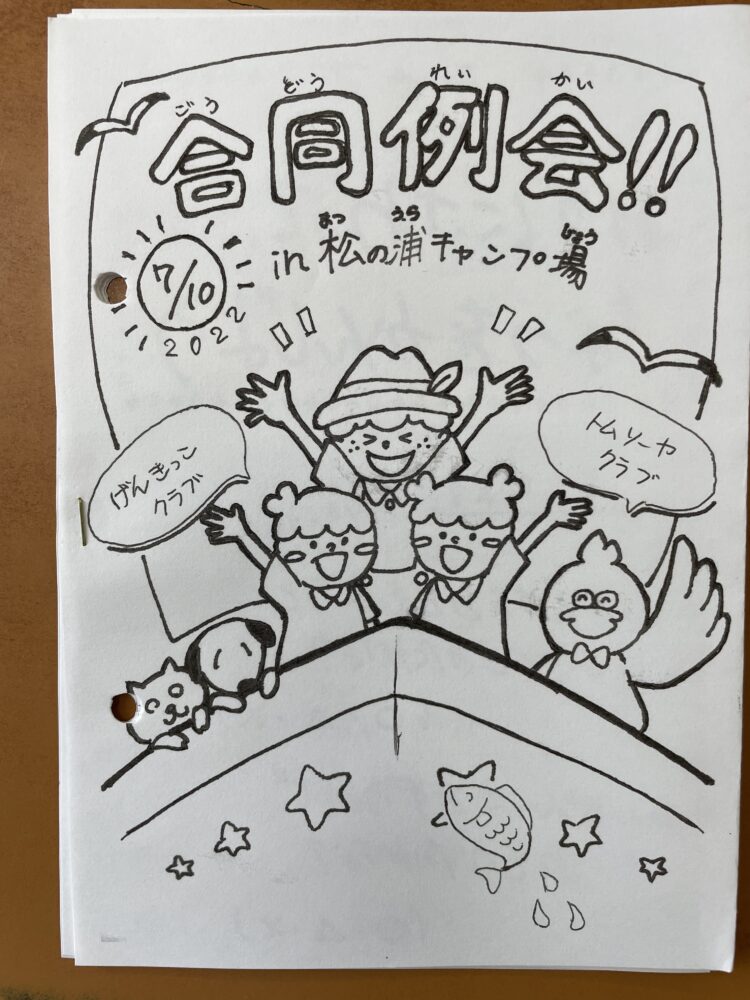 ごう どう れい かい
合同例会!!
まつ うら じょう
in 松の浦キャンプ場
7/10
2022
げんきっこ
クラブ
トムソーヤ
クラブ